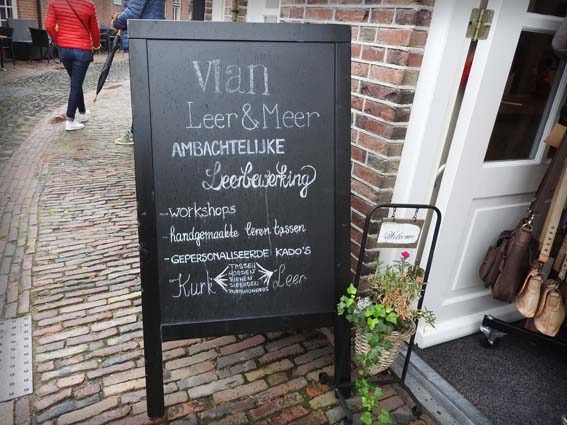 Vlan
Leer & Meer
AMBACHTELIJKE
Leerbewerking
- workshops
- handgemaakte leren tassen
- GEPERSONALISEERDE KADO'S
Kurk TASSEN Leer
HOEDEN
RIEMEN
SIERADEN
PORTEMONNEES
Welcome